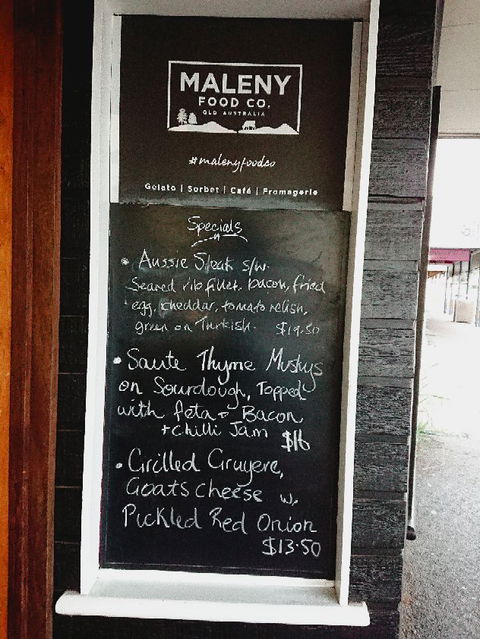 MALENY
FOOD CO.
QLD AUSTRALIA
#malenyfoodco
Gelato | Sorbet | Café | Fromagerie
Specials
• Aussie Steak s/w.
Seared rib fillet, bacon, fried
egg, cheddar, tomato relish,
green on Turkish. $19.50
• Saute Thyme Mushys
on Sourdough, Topped
with feta + Bacon
+ chilli Jam $16
• Grilled Gruyere,
Goats cheese w.
Pickled Red Onion
$13.50